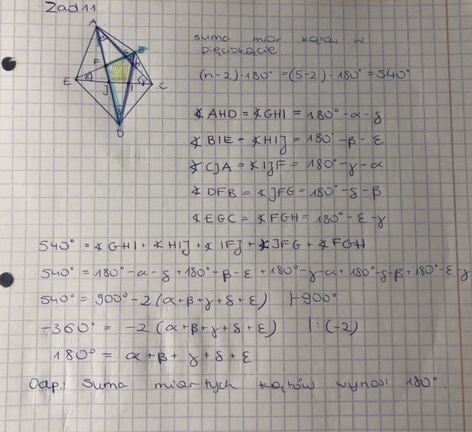 Zad 11
suma miar kątów w
pięciokącie
(n-2)·180° = (5-2)·180° = 540°
A
B
F
E
G
C
J
I
D
∢AHD = ∢GHI = 180° - α - δ
∢BIE = ∢HIJ = 180° - β - ε
∢CJA = ∢IJF = 180° - γ - α
∢DFB = ∢JFG = 180° - δ - β
∢EGC = ∢FGH = 180° - ε - γ
540° = ∢GHI + ∢HIJ + ∢IFJ + ∢JFG + ∢FGH
540° = 180° - α - δ + 180° - β - ε + 180° - γ - α + 180° - δ - β + 180° - ε - γ
540° = 900° - 2(α+β+γ+δ+ε) |-900°
-360° = -2(α+β+γ+δ+ε) |:(-2)
180° = α+β+γ+δ+ε
Odp: Suma miar tych kątów wynosi 180°.